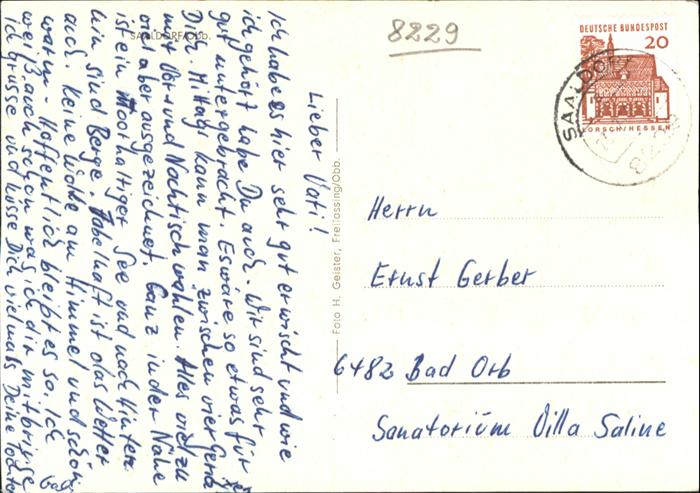 SAALDORF/Obb.
8229
DEUTSCHE BUNDESPOST
20
LORSCH/HESSEN
SAALDORF
Lieber Vati!
Ich habe es hier sehr gut erwischt und wie
ich gehört habe Du auch. Wir sind sehr
gut untergebracht. Es wäre so etwas für
Dich. Mittags kann man zwischen vier
mit Vor- und Nachtisch wählen. Alles viel zu
viel aber ausgezeichnet. Ganz in der Nähe
ist ein Moorhaltiger See und nach hinten
hin sind Berge. Fabelhaft ist das Wetter
auch. Keine Wolke am Himmel und schön
warm. Hoffentlich bleibt es so. Ich
weiß auch schon was ich dir mitbringe
Ich grüsse und küsse Dich vielmals Deine Tochter
Foto H. Geister, Freilassing/Obb.
Herrn
Ernst Gerber
6482 Bad Orb
Sanatorium Villa Saline